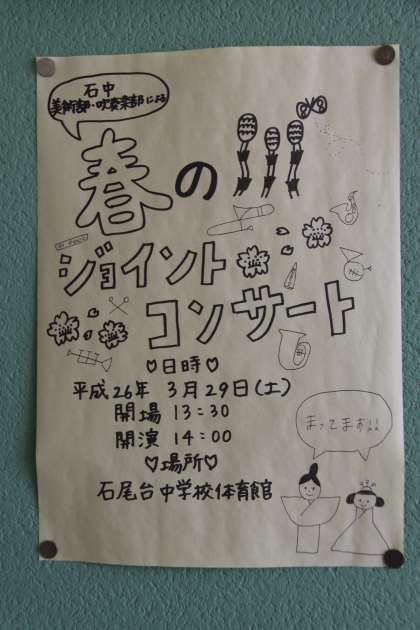 石中
美術部・吹奏楽部による
春の
ジョイント
コンサート
♡日時♡
平成26年 3月29日(土)
開場 13:30
開演 14:00
♡場所♡
石尾台中学校体育館
まってまぁす!!